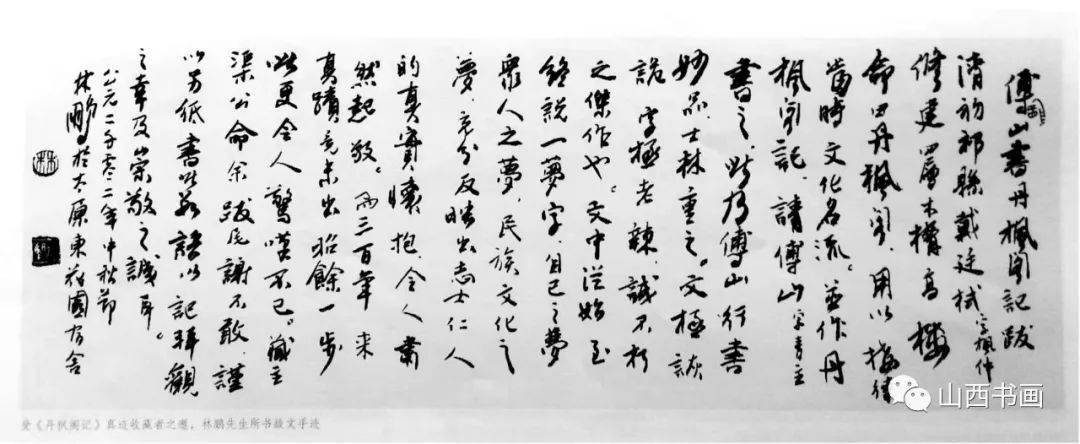 傅山書丹楓閣記跋
清初祁縣戴廷栻字楓仲
修建四層木構高樓
命曰丹楓閣,用以接待
當時文化名流。並作丹
楓閣記,請傅山字青主
書之,此乃傅山行書
妙品,士林重之。文極詼
詭,字極老辣,誠不朽
之傑作也。文中從始至
終說一夢字,自己之夢
眾人之夢,民族文化之
夢,充分反映出志士仁人
的真實懷抱,令人肅
然起敬。而三百年來
真蹟竟未出昭餘一步
此更令人驚嘆不已。藏主
渠公命余跋尾,謝不敢,謹
以另紙書此數語以記拜觀
之幸及崇敬之誠耳。
公元二千零二年中秋節
林鵬於太原東花園寓舍
受《丹枫阁记》真迹收藏者之邀,林鹏先生所书跋文手迹
山西书画